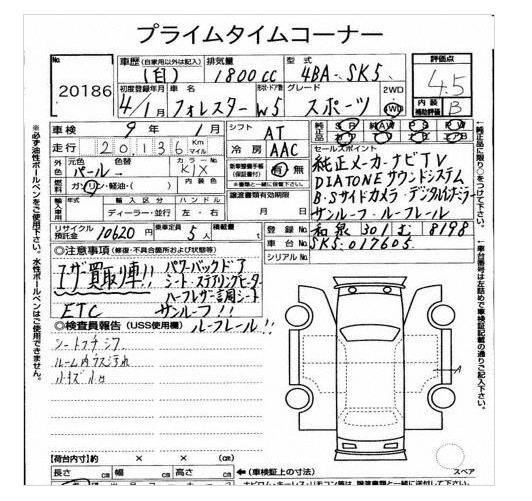 プライムタイムコーナー
No. 20186
車歴 (自家用以外は記入) (自)
排気量 1800cc
型式 4BA-SK5
評価点 4.5
内装補助評価 B
初度登録年月 4/1月
車名 フォレスター
形状・ドア数 W5
グレード スポーツ
2WD
4WD
車検 9年 1月
シフト AT
純正品
走行 20,136 Km マイル
冷房 AAC
セールスポイント
純正メーカーナビTV
DIATONEサウンドシステム
B・Sサイドカメラ・デジタルインナーミラー
サンルーフ・ルーフレール
外色 元色 パール 色替
カラーNo. K1X
内装色
燃料 ガソリン・軽油・( )
新車整備手帳(保証書付) 有・無
輸入車用 年式
輸入区分 ディーラー・並行
ハンドル 左・右
譲渡書類有効期限 月 日
リサイクル預託金 10620円
乗車定員 5人
積載量 t
登録No. 和泉 301 む 8198
車台No. SK5-017605
シリアルNo.
◎注意事項 (修復・不具合箇所および状態等)
ユーザー買取り車!!
パワーバックドア
シート・ステアリングヒーター
ハーフレザー調シート
ETC サンルーフ!!
ルーフレール!!
◎検査員報告 (USS使用欄)
シートフチシワ
ルーム内ウス汚れ
小キズ小凹
A
スペア
【荷台内寸】約 × × (cm)
長さ cm 幅 cm 高さ cm ←(車検証上の寸法)
※必ず油性ボールペンをご使用下さい。水性ボールペンはご使用できません。
←純正品に限り○をつけて下さい。
←車台番号は左詰めで車検証記載の通りご記入下さい。